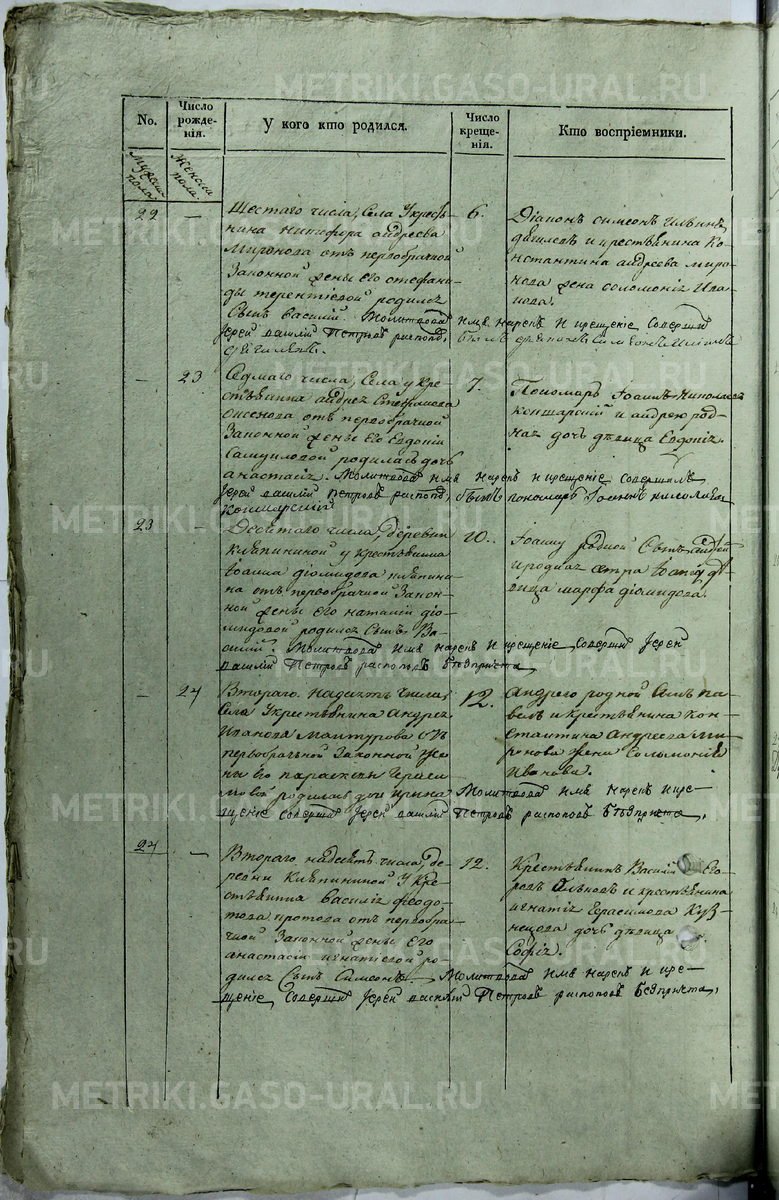 METRIKI.GASO-URAL.RU
No.
Число рожде-
нія.
У кого кто родился.
Число
креще-
нія.
Кто воспріемники.
Мужеска
пола.
Женска
пола.
22 — Шестаго числа, Села У кресть-
янина Никифора Андреева
Миронова отъ первобрачной
Законной жены Его Стефани-
ды Терентіевой родился
Сынъ Василій. Молитвовалъ
Іерей Василій Петровъ распоповъ,
6.
Діаконъ Симеонъ
и крестьянина Ко-
нстантина Андреева Миро-
нова жена Соломонія Ива-
нова.
имя нарекъ и крещеніе Совершилъ
— 23 Седмаго числа, Села у кре-
стьянина Андрея
отъ первобрачной
Законной жены Его Евдокіи
Самуиловой родилась дочь
Анастасія. Молитвовалъ имя нарекъ и крещеніе совершилъ
Іерей Василій Петровъ распоповъ, былъ пономарь Іоаннъ Николаевъ
7.
Пономарь Іоаннъ Николаевъ
и Андрею род-
ная дочь дѣвица Евдокія.
23 — Десятаго числа, деревни
Кляпининой у крестьянина
Іоанна Діомидова Кляпини-
на отъ первобрачной Закон-
ной жены Его Наталіи
родился Сынъ Ва-
силій. Молитвовалъ имя нарекъ и крещеніе Совершилъ Іерей
Василій Петровъ распоповъ безъ причта,
10.
Іоанну родной Сынъ Андрей
и родная сестра Іоанну дѣ-
вица Марфа Діомидова.
— 24 Втораго надесять числа,
Села У крестьянина Андрея
Иванова Мантурова отъ
первобрачной Законной же-
ны Его Параскевы Гераси-
мовой родилась дочь Ирина Молитвовалъ имя нарекъ и кре-
щеніе совершилъ Іерей Василій Петровъ распоповъ безъ причта,
12.
Андрею родной Сынъ Па-
велъ и крестьянина Кон-
стантина Андреева Ми-
ронова жена Соломонія
Иванова.
24 — Втораго надесять числа, де-
ревни Кляпининой У кре-
стьянина Василія Федо-
това отъ первобра-
чной Законной жены Его
Анастасіи Игнатіевой ро-
дился Сынъ Симеонъ. Молитвовалъ имя нарекъ и кре-
щеніе, Совершилъ Іерей Василій Петровъ распоповъ безъ причта,
12.
Крестьянинъ Василій
и крестьянина
Игнатія Герасимова Куз-
нецова дочь дѣвица
Софія.